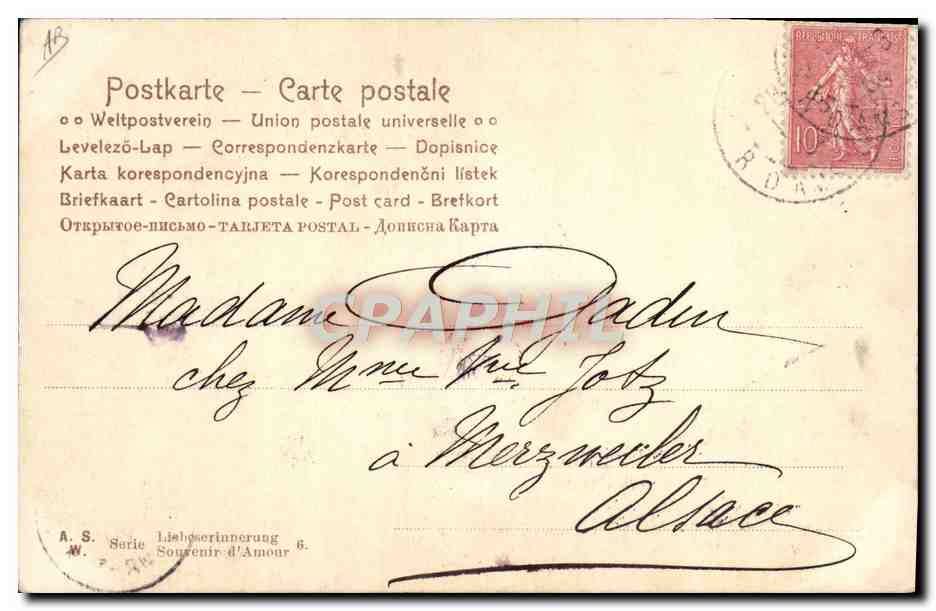 AB
REPUBLIQUE FRANÇAISE
10
Postkarte – Carte postale
Weltpostverein — Union postale universelle
Levelező-Lap — Correspondenzkarte — Dopisnice
Karta korespondencyjna — Korespondenční lístek
Briefkaart - Cartolina postale - Post card - Brefkort
Открытое-письмо - TARJETA POSTAL - Дописна Карта
Madame Gladen
CPAPHIL
chez Mme Vve Jotz
à Merzweiler
Alsace
A. S. W. Serie Liebeserinnerung
Souvenir d'Amour 6.